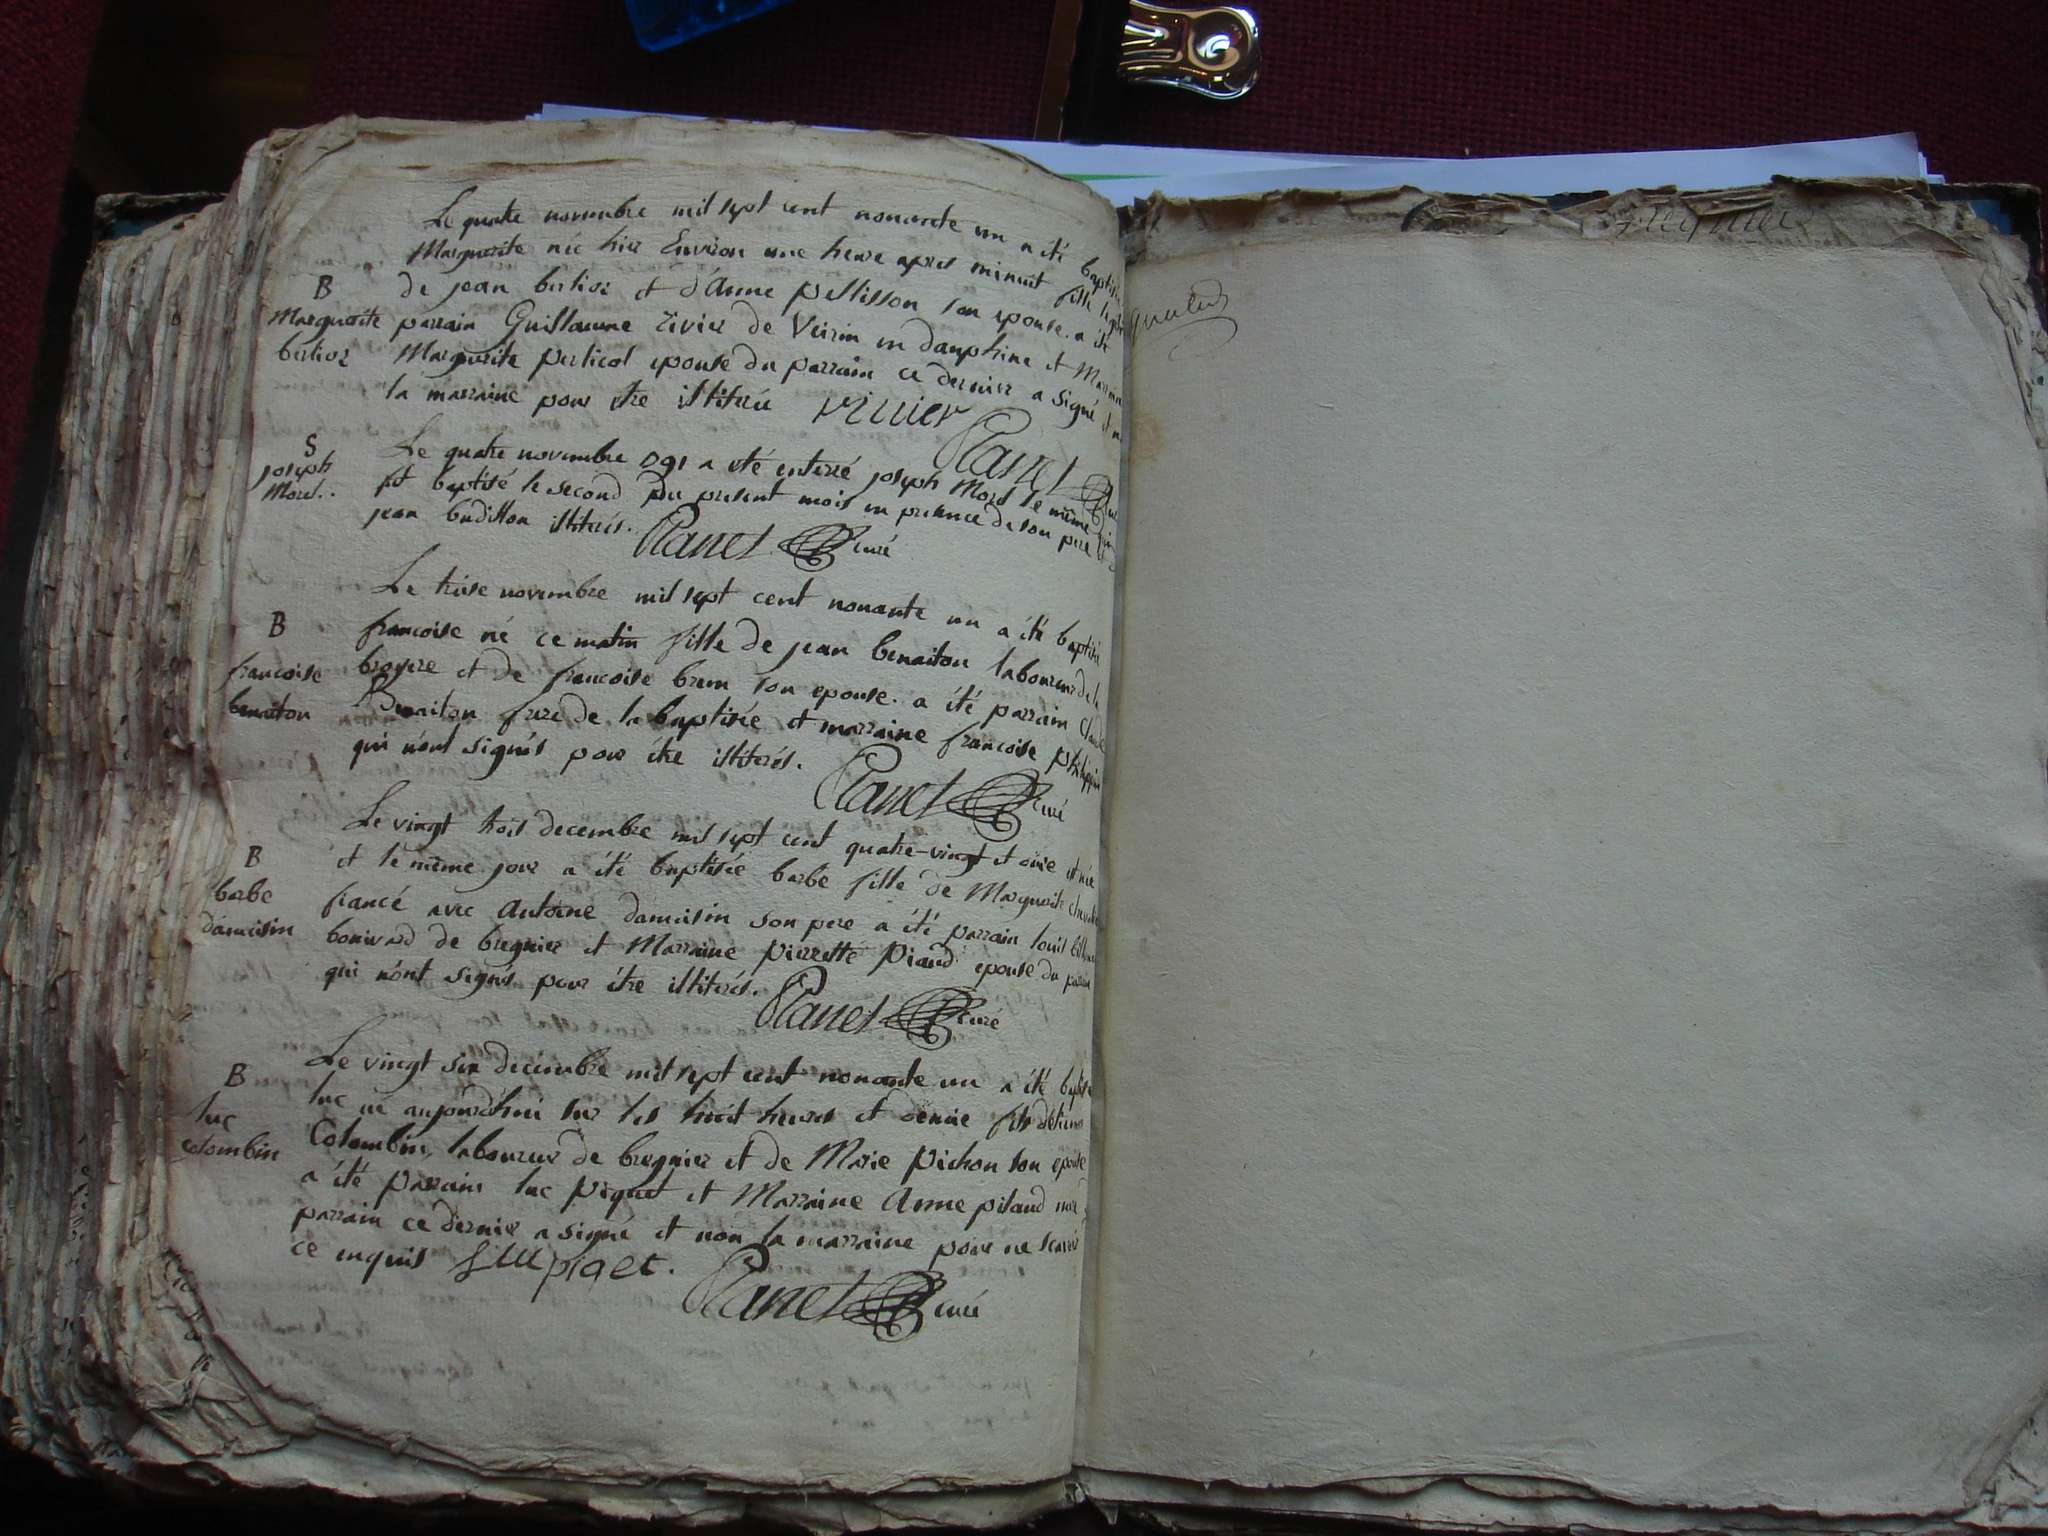 Le quatre novembre mil sept cent nonante un a été baptisée
Marguerite née hier Environ une heure apres minuit fille
B
Marguerite
berlioz
de jean berlioz et d'Anne pellisson son epouse. a été
parrain Guillaume rivier de Veirin en dauphine et Marraine
Marguerite perticol epouse du parrain ce dernier a signé
la marraine pour etre illiterée rivier
Planet curé
S
joseph
Morel..
Le quatre novembre 791 a été enterré joseph Morel le même
fut baptisé le second du present mois en presence de son pere
jean budillon illiterés. Planet curé
Le treise novembre mil sept cent nonante un a été baptisée
B
francoise
benaiton
francoise né ce matin fille de jean benaiton laboureur de la
broyere et de francoise brun son epouse. a été parrain Claude
Benaiton frere de la baptisée et marraine francoise
qui n'ont signés pour être illiterés.
Planet curé
Le vingt trois decembre mil sept cent quatre-vingt et onze est née
B
barbe
damaisin
et le même jour a été baptisée barbe fille de Marguerite
fiancé avec Antoine damaisin son pere a été parrain louis
bonivard de bregnier et Marraine pierrette piaud epouse du parrain
qui n'ont signés pour être illiterés.
Planet curé
Le vingt six decembre mil sept cent nonante un a été baptisé
B
luc
colombin
luc né aujourd'hui sur les huit heures et demie fils
Colombin, laboureur de bregnier et de Marie pichon son epouse
a été parrain luc piquet et Marraine Anne pilaud
parrain ce dernier a signé et non la marraine pour ne scavoir
ce enquis piqet.
Planet curé